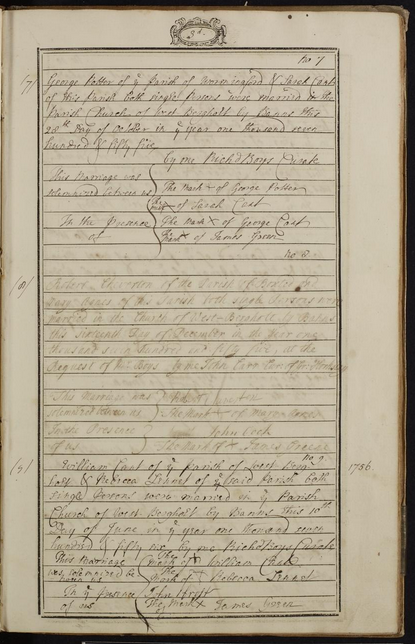 3d.
No 7
(7) George Potter of ye Parish of Wormingford & Sarah Cant
of this Parish both single Persons were married in the
Parish Church of West Bergholt by Banns this
28th Day of October in ye year one thousand seven
hundred & fifty five
by me Richd Boys Curate
This Marriage was
solemnized between us
The Mark X of George Potter
The Mark X of Sarah Cant
In the Presence
of
The Mark X of George Cant
The Mark X of James Green
No 8
(8) of the Parish of
of this Parish both single Persons were
married in the Church of West Bergholt by Banns
this sixteenth Day of December in the year one
thousand seven hundred and fifty five, at the
Request of Mr Boys by me John Carr
This Marriage was
solemnized between us
The Mark X of
In the Presence
of us
John Cock
The Mark of X James Green
No 9
(9) William Cant of ye Parish of West Berg- 1756
holt & Rebecca Linnet of ye said Parish both
single Persons were married in ye Parish
Church of West Bergholt by Banns this 10th
Day of June in ye year one thousand seven
hundred & fifty six by me Richd Boys Curate
This Marriage
was solemnized be
tween us
The mark of X William Cant
The Mark of X Rebecca Linnet
In ye presence
of us
John
The Mark X James Green